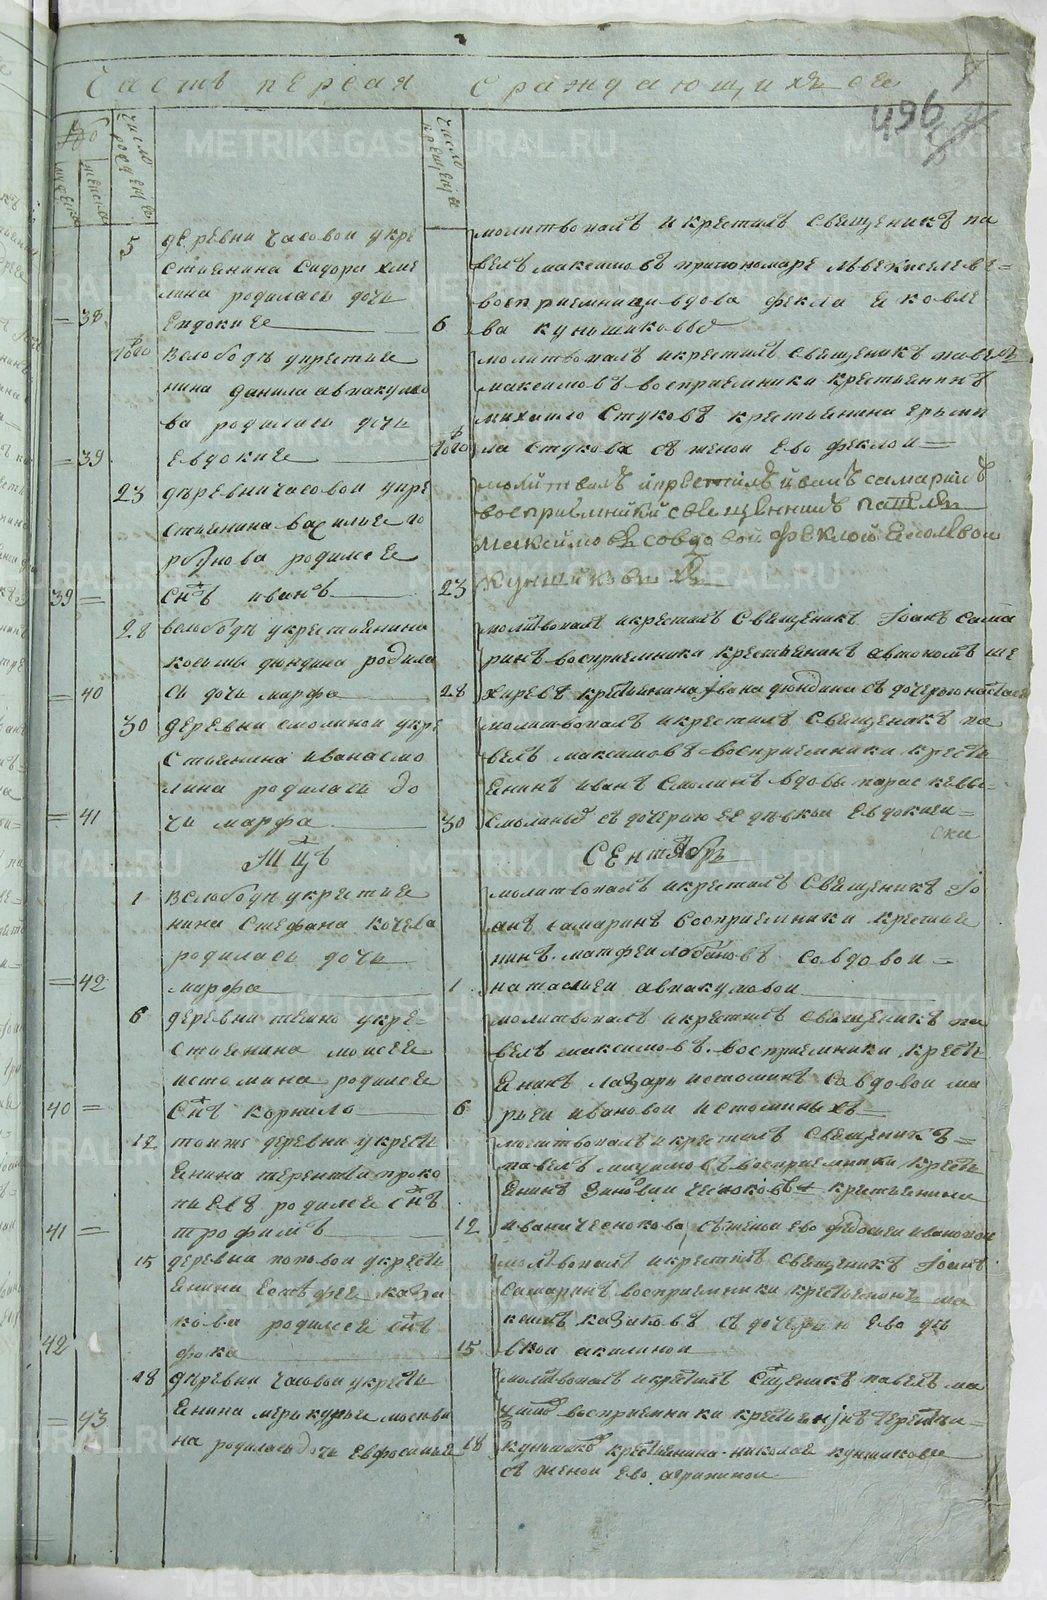 Часть первая о раждающихъ ся
496
№
мужеска
женска
число рожденія
число крещенія
5 деревни часовой у кре
стьянина Сидора хме
лина родилась дочь
= 38 Евдокия 6
молитвовалъ и крестилъ священникъ па
велъ максимовъ при пономаре
восприемница вдова фекла яковле
ва куншиковыд
того в слободѣ у крестья
нина данила авакумо
ва родилась дочь
= 39 Евдокия того
молитвовалъ и крестилъ священникъ павелъ
максимовъ восприемники крестьянинъ
михайло Стуковъ крестьянина
Стукова съ женой ево феклой =
23 деревни часовой у кре
стьянина василия го
родилсе
39 = снъ иванъ 23
молитвалъ и крестилъ иоанъ самаринъ
восприемники священникъ павелъ
максимовъ со вдовой феклой яковлевой
куншиковыхъ
28 в слободѣ у крестьянина
козмы дюндина родила
= 40 сь дочь марфа 28
молитвовалъ и крестилъ священникъ Iоанъ сама
ринъ восприемники крестьянинъ автономъ ше
харевъ крестьянина Iвана дюндина съ дочерью настасей
30 деревни смолиной у кре
стьянина ивана смо
лина родилась до
= 41 чь марфа 30
молитвовалъ и крестилъ священникъ па
велъ максимовъ восприемники кресть
янинъ иванъ Смолинъ вдовы парасковьи
Смолиныд съ дочерью ее дѣвкой Евдокией
ски
Мцъ Сентябрь
1 в слободѣ у крестья
нина Стефана кочева
родилась дочь
= 42 марфа 1
молитвовалъ и крестилъ священникъ Iо
анъ самаринъ восприемники крестья
нинъ матфей лобановъ со вдовой =
наталией авакумовой
6 деревни темно у кре=
стьянина моисея
истомина родилсе
40 = снъ корнило 6
молитвовалъ и крестилъ священникъ па
велъ максимовъ восприемники кресть
янинъ лазарь истоминъ со вдовой ма
рьей ивановой истоминыхъ =
12 той же деревни у кресть
янина терентиа проко
пьева родилсе снъ
41 = трофимъ 12
молитвовалъ и крестилъ священникъ =
павелъ максимовъ восприемники кресть
янинъ зиновий чесноковъ крестьянина
ивана чеснокова съ женой ево федосьей ивановой
15 деревни поповой у кресть
янина Естѣфея каза
кова родилсе снъ
42 фока 15
молитвовалъ и крестилъ священникъ Iоанъ
самаринъ восприемники крестьянинъ ма
казаковъ съ дочерью ево дѣ
вкой акилиной
18 деревни часовой у кресть
янина меркурья москви
= 43 на родилась дочь Евфросинья 18
молитвовалъ и крестилъ сщеникъ павелъ ма
восприемники крестьянинъ терентей
кунш крестьянина николая куншикова
съ женой ево агрипиной